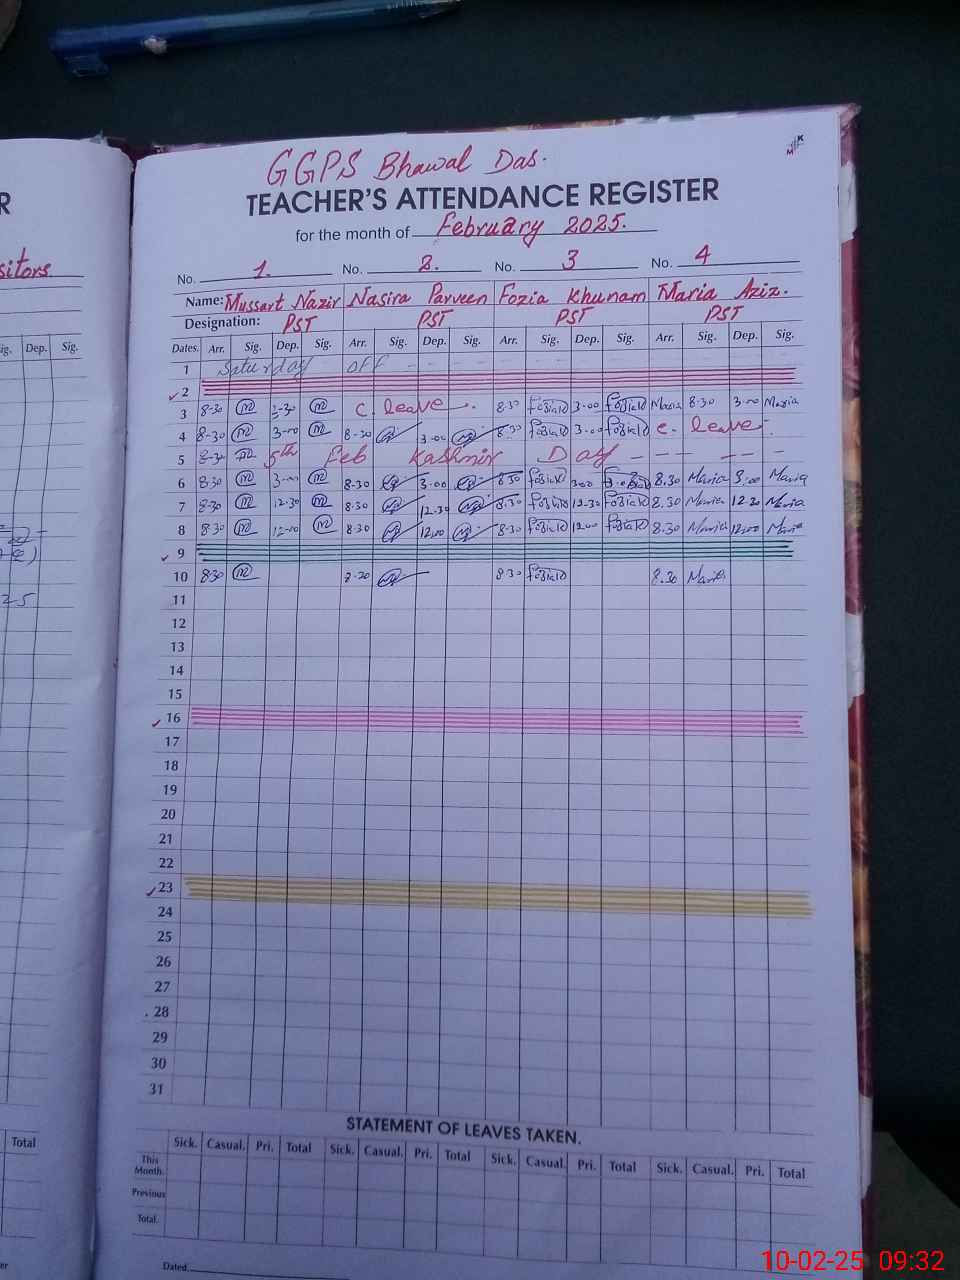 GGPS Bhawal Das.
TEACHER'S ATTENDANCE REGISTER
for the month of February 2025.
No. 1. No. 2. No. 3 No. 4
Name: Mussart Nazir Nasira Parveen Fozia Khunam Maria Aziz.
Designation: PST PST PST PST
Dates. Arr. Sig. Dep. Sig. Arr. Sig. Dep. Sig. Arr. Sig. Dep. Sig. Arr. Sig. Dep. Sig.
1 Saturday off
2
3 8-30 C. leave 8.30 3.00 Maria 8.30 3.00 Maria
4 8-30 3-00 8-30 3.00 8.30 3.00 c. leave
5 8-30 5th Feb Kashmir Day
6 8.30 3-00 8.30 3.00 8.30 3.00 8.30 Maria 3:00 Maria
7 8.30 12.30 8.30 12.30 8.30 12.30 8.30 Maria 12.30 Maria
8 8.30 12.00 8.30 12.00 8.30 12.00 8.30 Maria 12.00 Maria
9
10 8.30 8.30 8.30 Maria
11
12
13
14
15
16
17
18
19
20
21
22
23
24
25
26
27
28
29
30
31
STATEMENT OF LEAVES TAKEN.
Sick. Casual. Pri. Total Sick. Casual. Pri. Total Sick. Casual. Pri. Total Sick. Casual. Pri. Total
This Month.
Previous
Total.
Dated
R
sitors
Sig. Dep. Sig.
25
Total
MK
10-02-25 09:32